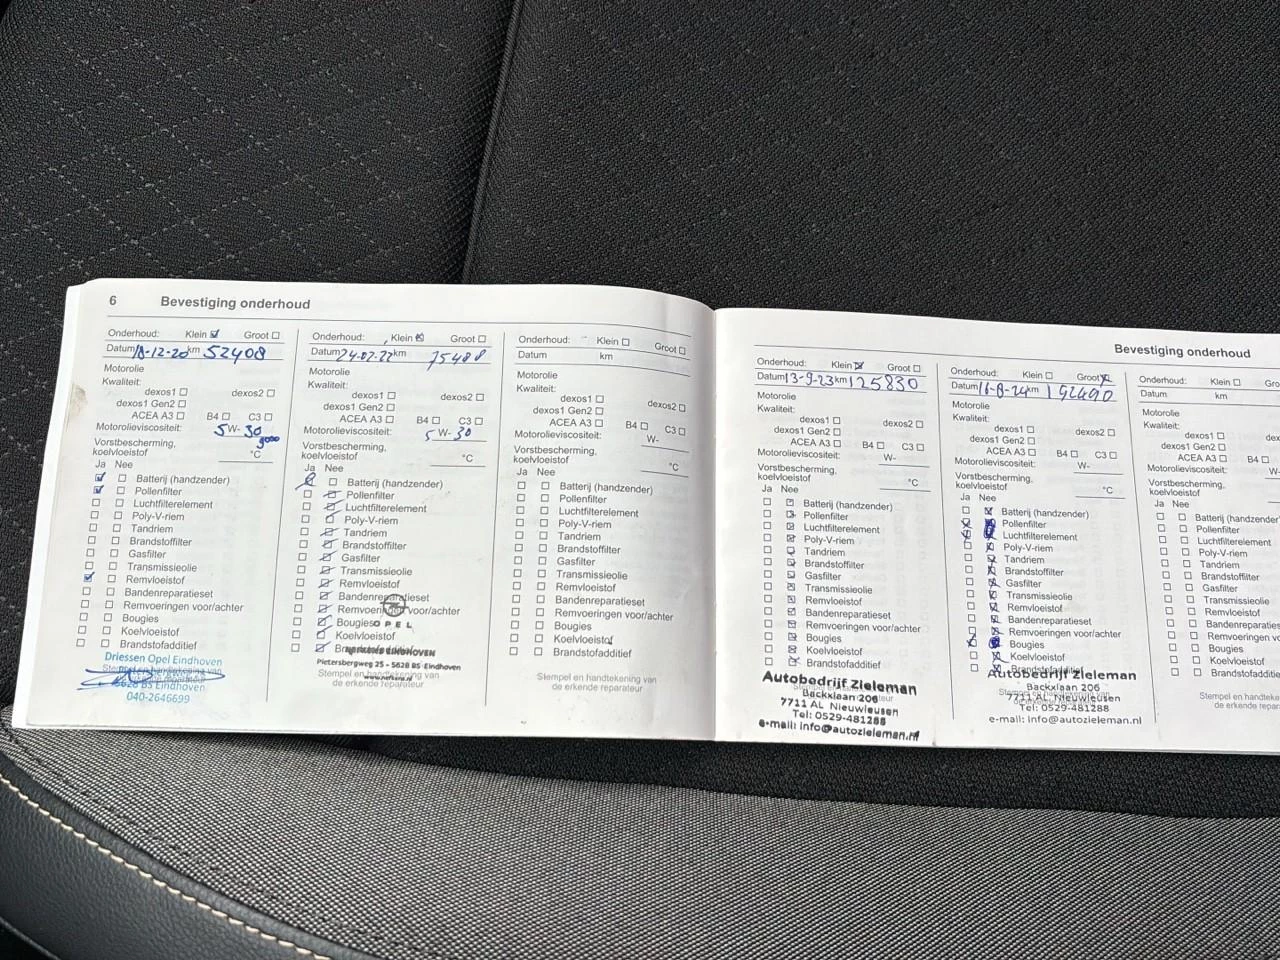 6 Bevestiging onderhoud
Onderhoud: Klein Groot
Datum 18-12-20 km 52408
Motorolie
Kwaliteit:
dexos1 dexos2
dexos1 Gen2
ACEA A3 B4 C3
Motorolieviscositeit: 5W-30
Vorstbescherming,
koelvloeistof °C
Ja Nee
Batterij (handzender)
Pollenfilter
Luchtfilterelement
Poly-V-riem
Tandriem
Brandstoffilter
Gasfilter
Transmissieolie
Remvloeistof
Bandenreparatieset
Remvoeringen voor/achter
Bougies
Koelvloeistof
Brandstofadditief
Driessen Opel Eindhoven
Stempel en handtekening van
5628 BS Eindhoven
040-2646699
Onderhoud: Klein Groot
Datum 24-02-22 km 75488
Motorolie
Kwaliteit:
dexos1 dexos2
dexos1 Gen2
ACEA A3 B4 C3
Motorolieviscositeit: 5W-30
Vorstbescherming,
koelvloeistof °C
Ja Nee
Batterij (handzender)
Pollenfilter
Luchtfilterelement
Poly-V-riem
Tandriem
Brandstoffilter
Gasfilter
Transmissieolie
Remvloeistof
Bandenreparatieset
Remvoeringen voor/achter
Bougies OPEL
Koelvloeistof
EINDHOVEN
Pietersbergweg 25 - 5628 BS Eindhoven
Stempel en handtekening van
de erkende reparateur
Onderhoud: Klein Groot
Datum km
Motorolie
Kwaliteit:
dexos1 dexos2
dexos1 Gen2
ACEA A3 B4 C3
Motorolieviscositeit: W-
Vorstbescherming,
koelvloeistof °C
Ja Nee
Batterij (handzender)
Pollenfilter
Luchtfilterelement
Poly-V-riem
Tandriem
Brandstoffilter
Gasfilter
Transmissieolie
Remvloeistof
Bandenreparatieset
Remvoeringen voor/achter
Bougies
Koelvloeistof
Brandstofadditief
Stempel en handtekening van
de erkende reparateur
Bevestiging onderhoud
Onderhoud: Klein Groot
Datum 13-9-23 km 125830
Motorolie
Kwaliteit:
dexos1 dexos2
dexos1 Gen2
ACEA A3 B4 C3
Motorolieviscositeit: W-
Vorstbescherming,
koelvloeistof °C
Ja Nee
Batterij (handzender)
Pollenfilter
Luchtfilterelement
Poly-V-riem
Tandriem
Brandstoffilter
Gasfilter
Transmissieolie
Remvloeistof
Bandenreparatieset
Remvoeringen voor/achter
Bougies
Koelvloeistof
Brandstofadditief
Autobedrijf Zieleman
Backxlaan 206
7711 AL Nieuwleusen
Tel: 0529-481288
e-mail: info@autozieleman.nl
Onderhoud: Klein Groot
Datum 16-8-24 km 142490
Motorolie
Kwaliteit:
dexos1 dexos2
dexos1 Gen2
ACEA A3 B4 C3
Motorolieviscositeit: W-
Vorstbescherming,
koelvloeistof °C
Ja Nee
Batterij (handzender)
Pollenfilter
Luchtfilterelement
Poly-V-riem
Tandriem
Brandstoffilter
Gasfilter
Transmissieolie
Remvloeistof
Bandenreparatieset
Remvoeringen voor/achter
Bougies
Koelvloeistof
Brandstofadditief
Autobedrijf Zieleman
Backxlaan 206
7711 AL Nieuwleusen
Tel: 0529-481288
e-mail: info@autozieleman.nl
Onderhoud: Klein Gro
Datum km
Motorolie
Kwaliteit:
dexos1 dex
dexos1 Gen2
ACEA A3 B4
Motorolieviscositeit: W-
Vorstbescherming,
koelvloeistof
Ja Nee
Batterij (handzender
Pollenfilter
Luchtfilterelement
Poly-V-riem
Tandriem
Brandstoffilter
Gasfilter
Transmissieolie
Remvloeistof
Bandenreparatieset
Remvoeringen v
Bougies
Koelvloeistof
Brandstofadditi
Stempel en handteke
de erkende repar